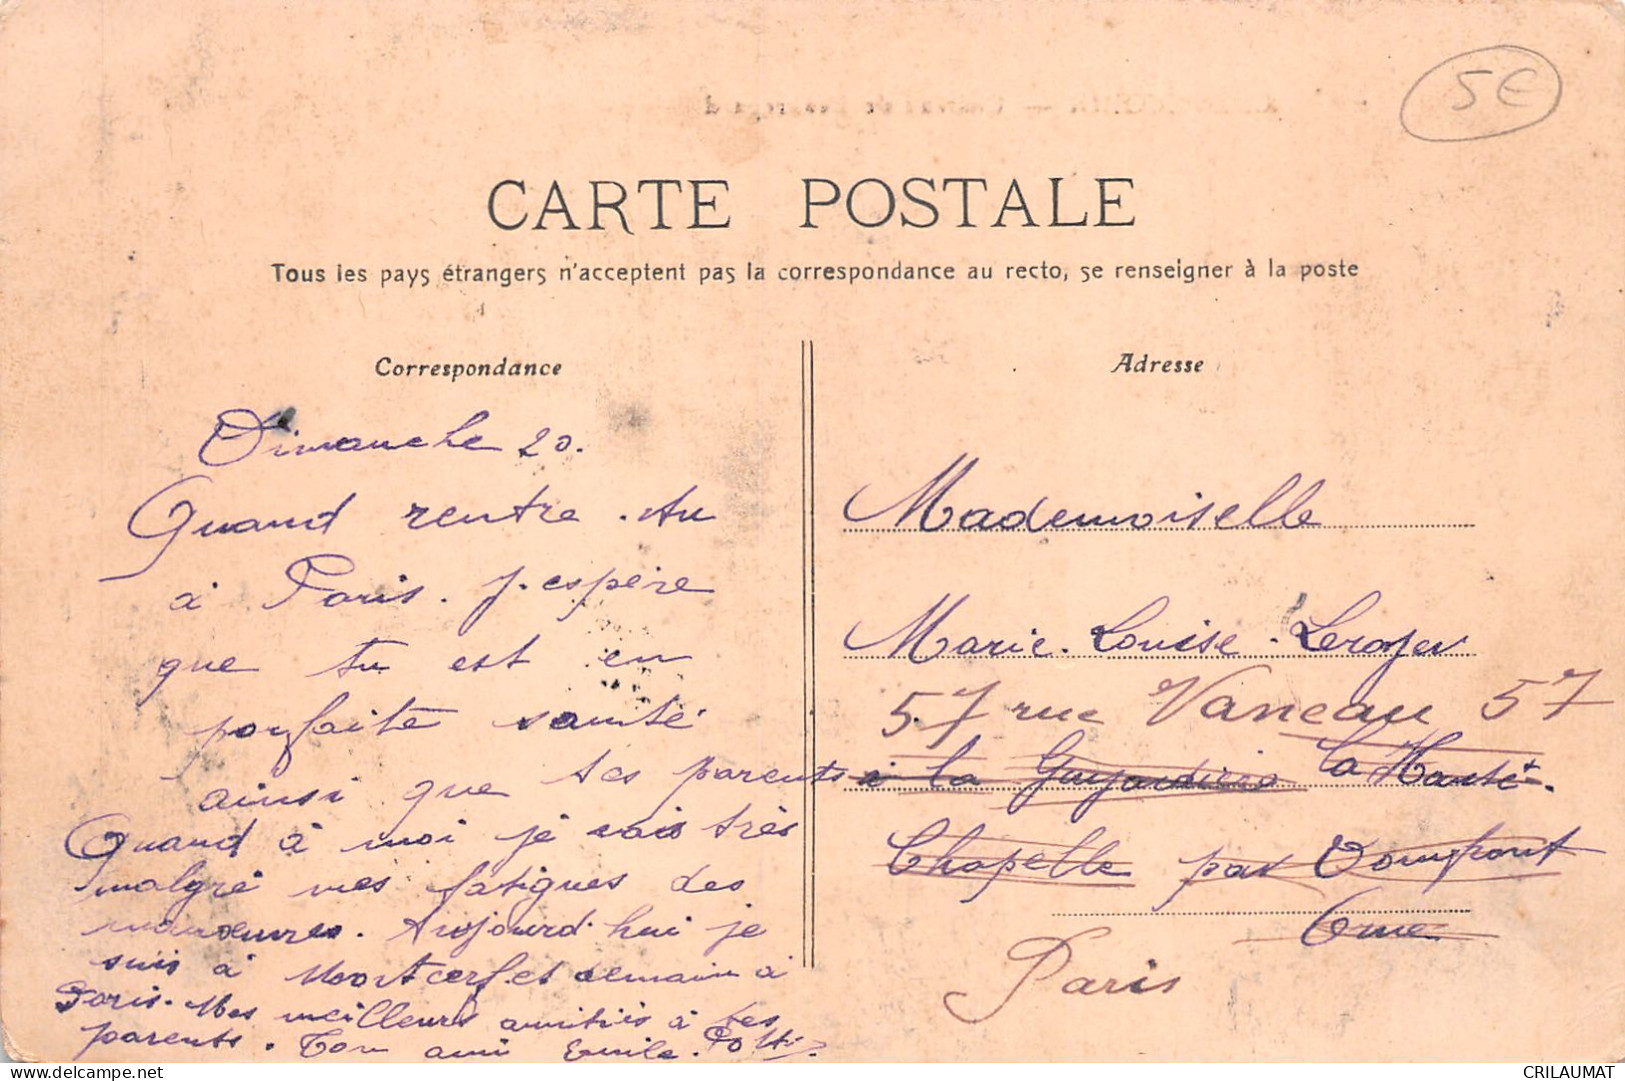 5€
CARTE POSTALE
Tous les pays étrangers n'acceptent pas la correspondance au recto, se renseigner à la poste
Correspondance
Dimanche 20.
Quand rentre-tu
à Paris. J'espère
que tu est en
parfaite santé
ainsi que tes parents
Quand à moi je vais très
malgré mes fatigues des
manœuvres. Aujourd'hui je
suis à Mortcerf et demain à
Paris. Mes meilleurs amitiés à tes
parents. Ton ami Emile.
Adresse
Mademoiselle
Marie-Louise Leroyer
57 rue Vaneau 57
à la La Haute
Chapelle par Domfront
Orne
Paris
CRILAUMAT